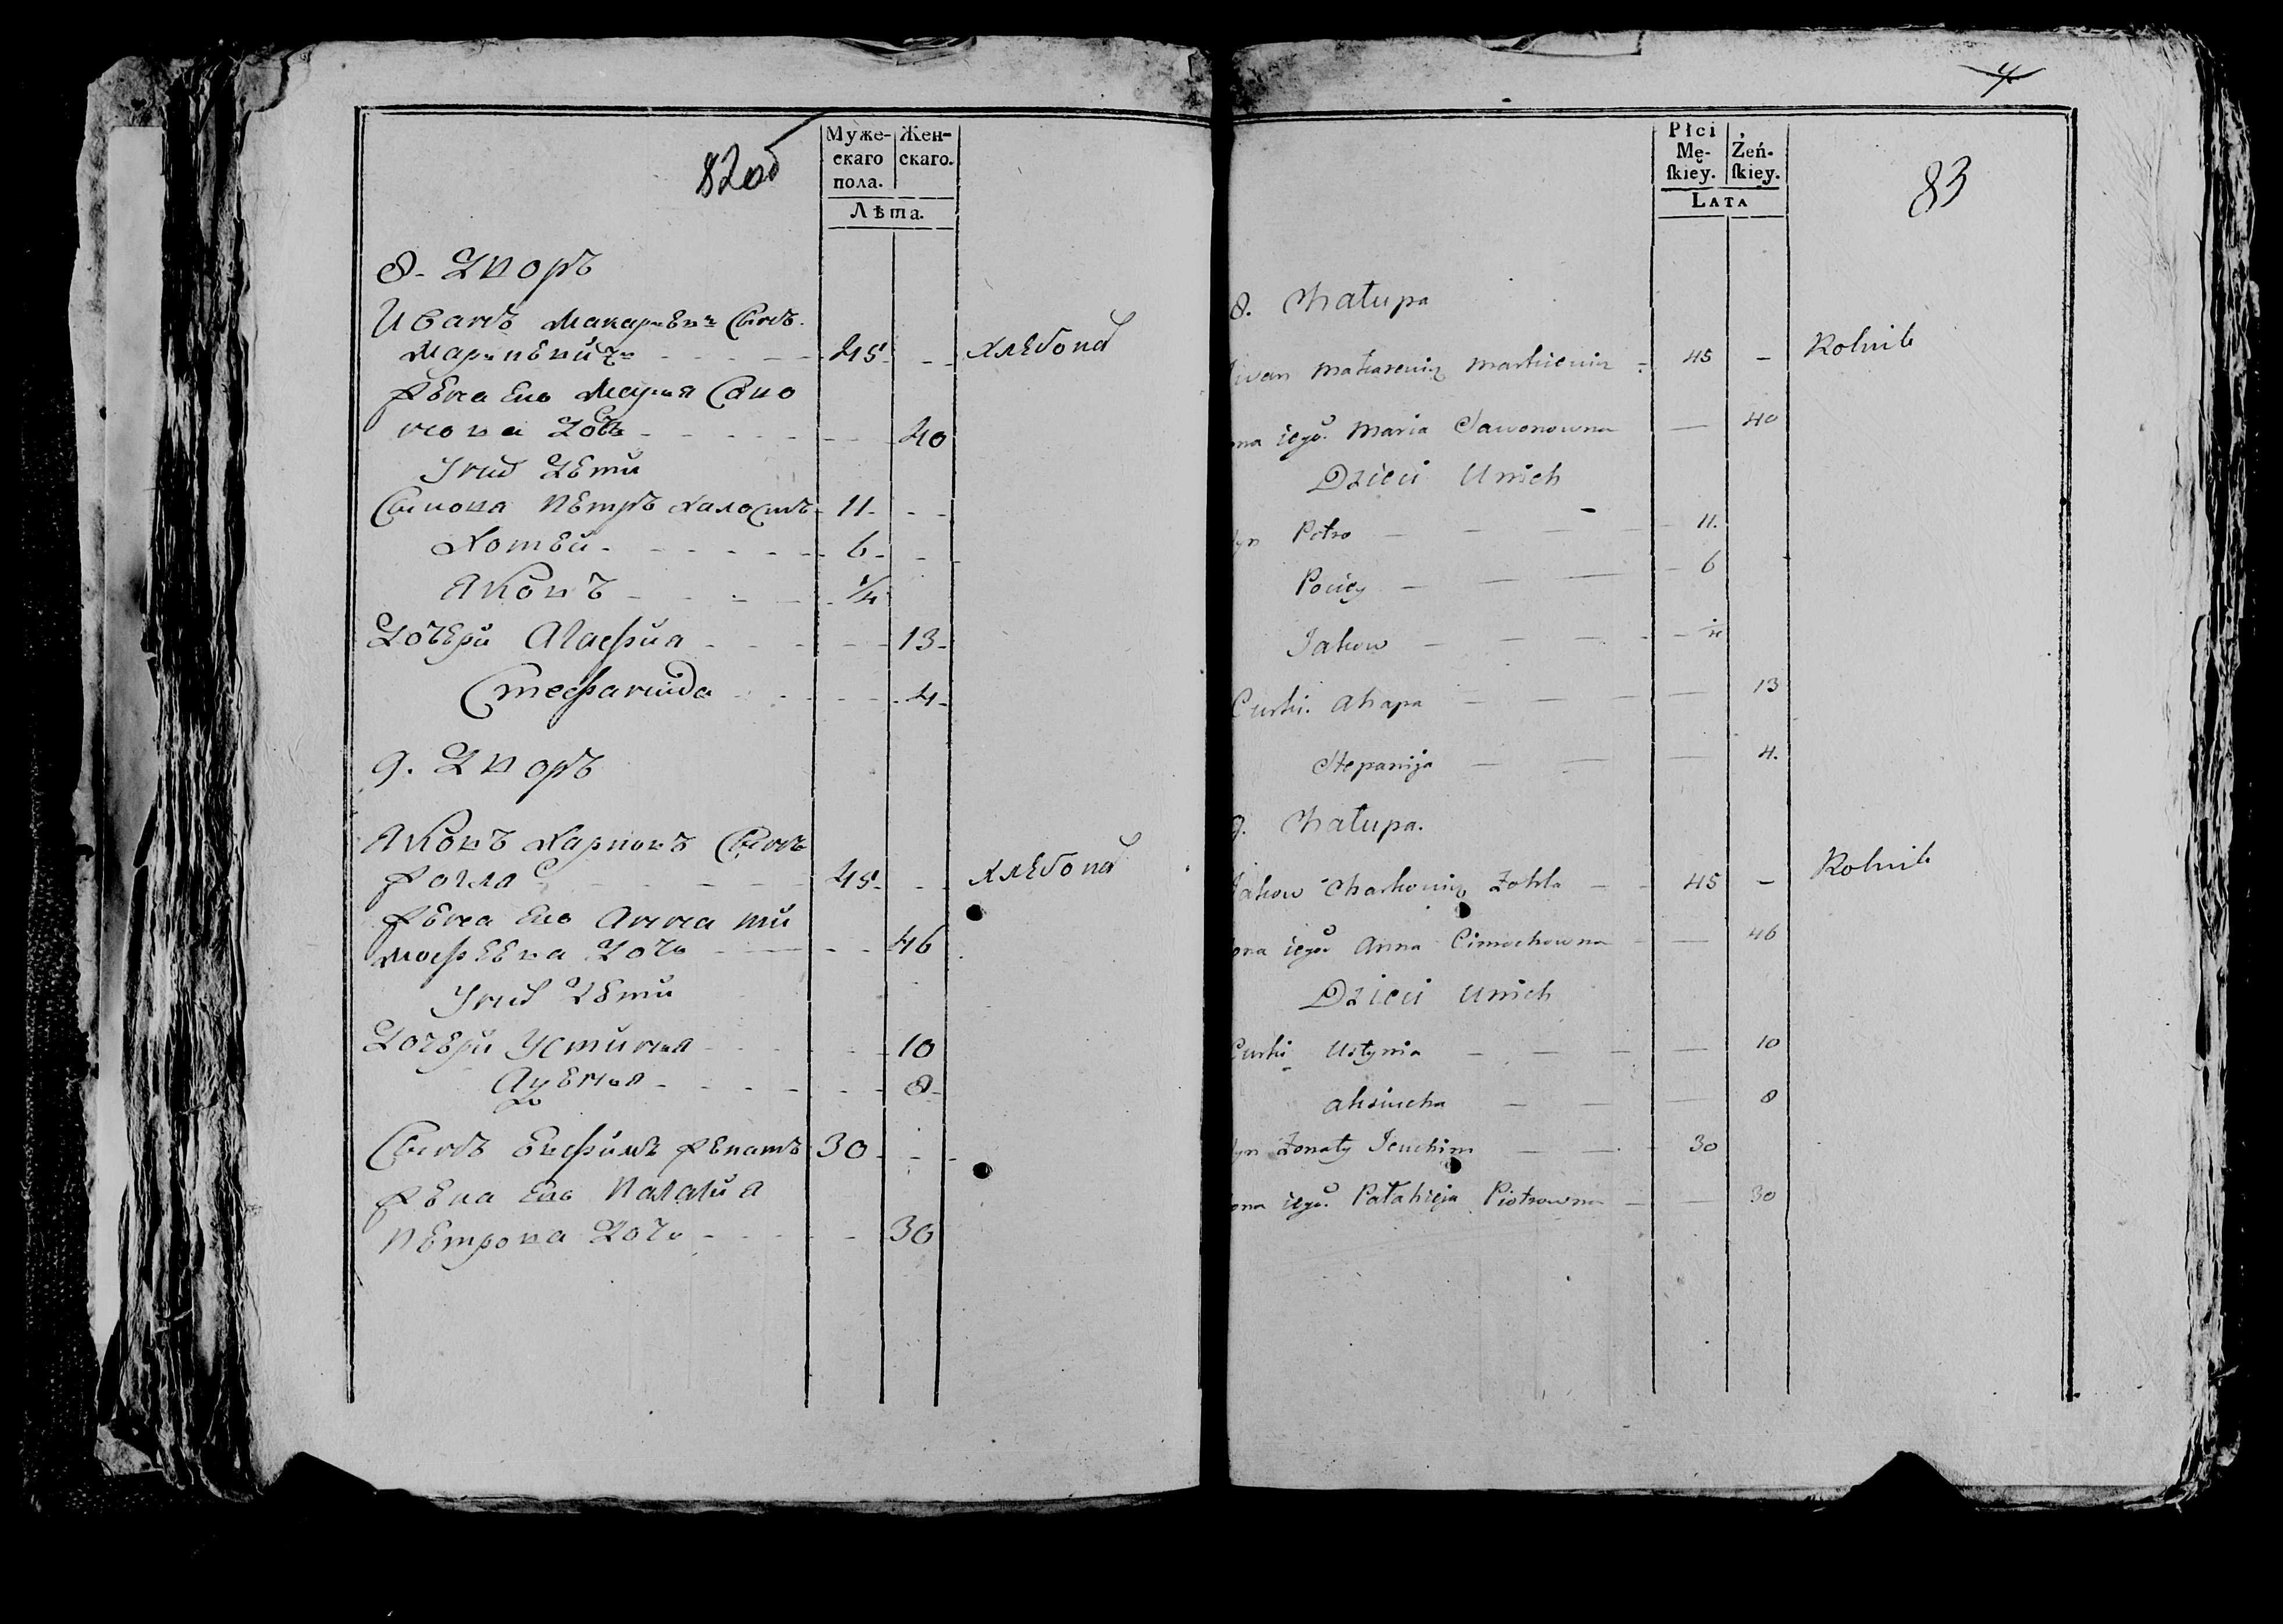 82об
Муже-
скаго
пола.
Жен-
скаго.
Лѣта.
8. Дворъ
Иванъ Макаревъ Сынъ
Маркевичъ 45 - хлебопа
Жена Его Марья Саво
нова Дочь 40
У них Дети
Сынова Петръ холостъ 11
Хотей 6
Яковъ 1/4
Дочери Агафия 13
Стефанида 4
9. Дворъ
Яковъ Харковъ Сынъ
Жогла 45 - хлебопа
Жена Его Анна ти
мофеева Дочь 46
У них Дети
Дочери Устинья 10
8
Сынъ Евфимъ женатъ 30
Жена Его Палагия
Петрова Дочь 30
4
83
Płci
Mę-
ſkiey.
Żeń-
ſkiey.
LATA
8. Chałupa
Iwan Makarewicz Markiewicz 45 - Rolnik
ona iego Maria Sawonowna - 40
Dzieci U nich
yn Petro 11.
6
Jakow
Curki. Ahapa 13
Stepanija 4.
9. Chałupa.
Jakow Charkowicz Żohla 45 - Rolnik
ona iego Anna Cimochowna - 46
Dzieci U nich
Curki Ustynia 10
Aksiucha 8
yn Żonaty Jeuchim 30
ona iego Pałahieja Piotrowna 30